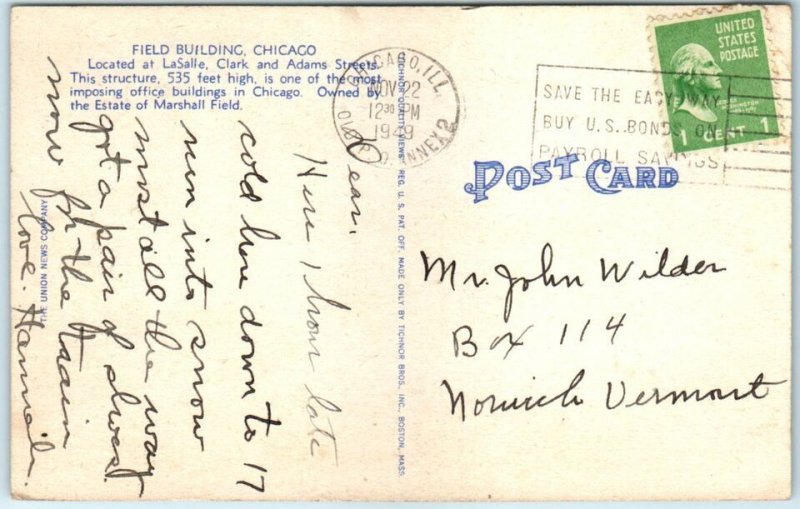 FIELD BUILDING, CHICAGO
Located at LaSalle, Clark and Adams Streets.
This structure, 535 feet high, is one of the most
imposing office buildings in Chicago. Owned by
the Estate of Marshall Field.
Dear.
Here 1 hour late
cold here down to 17
run into snow
most all the way
got a pair of shoes.
now for the train
love. Hannah.
THE UNION NEWS COMPANY
TICHNOR QUALITY VIEWS REG. U. S. PAT. OFF. MADE ONLY BY TICHNOR BROS., INC., BOSTON, MASS.
CHICAGO, ILL.
NOV 22
12 30 PM
1949
ANNEX 2
SAVE THE EASY WAY
BUY U.S. BONDS ON
PAYROLL SAVINGS
UNITED
STATES
POSTAGE
GEORGE
WASHINGTON
1 CENT 1
POST CARD
Mr. John Wilder
Box 114
Norwich Vermont